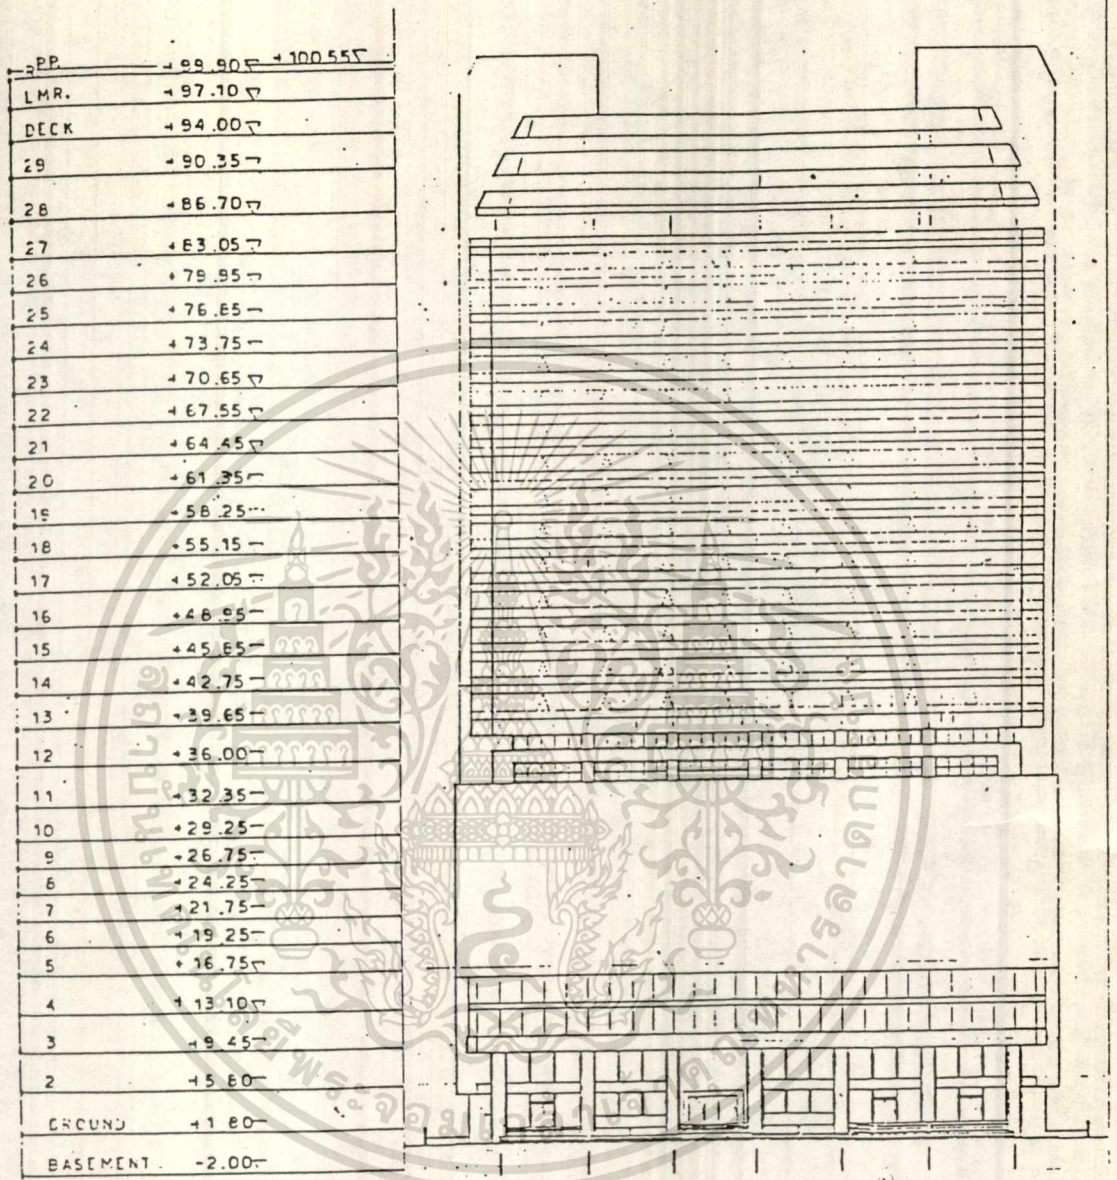 PP. +99.90 +100.55
LMR. +97.10
DECK +94.00
29 +90.35
28 +86.70
27 +83.05
26 +79.95
25 +76.85
24 +73.75
23 +70.65
22 +67.55
21 +64.45
20 +61.35
19 +58.25
18 +55.15
17 +52.05
16 +48.95
15 +45.85
14 +42.75
13 +39.65
12 +36.00
11 +32.35
10 +29.25
9 +26.75
8 +24.25
7 +21.75
6 +19.25
5 +16.75
4 +13.10
3 +9.45
2 +5.80
GROUND +1.80
BASEMENT. -2.00